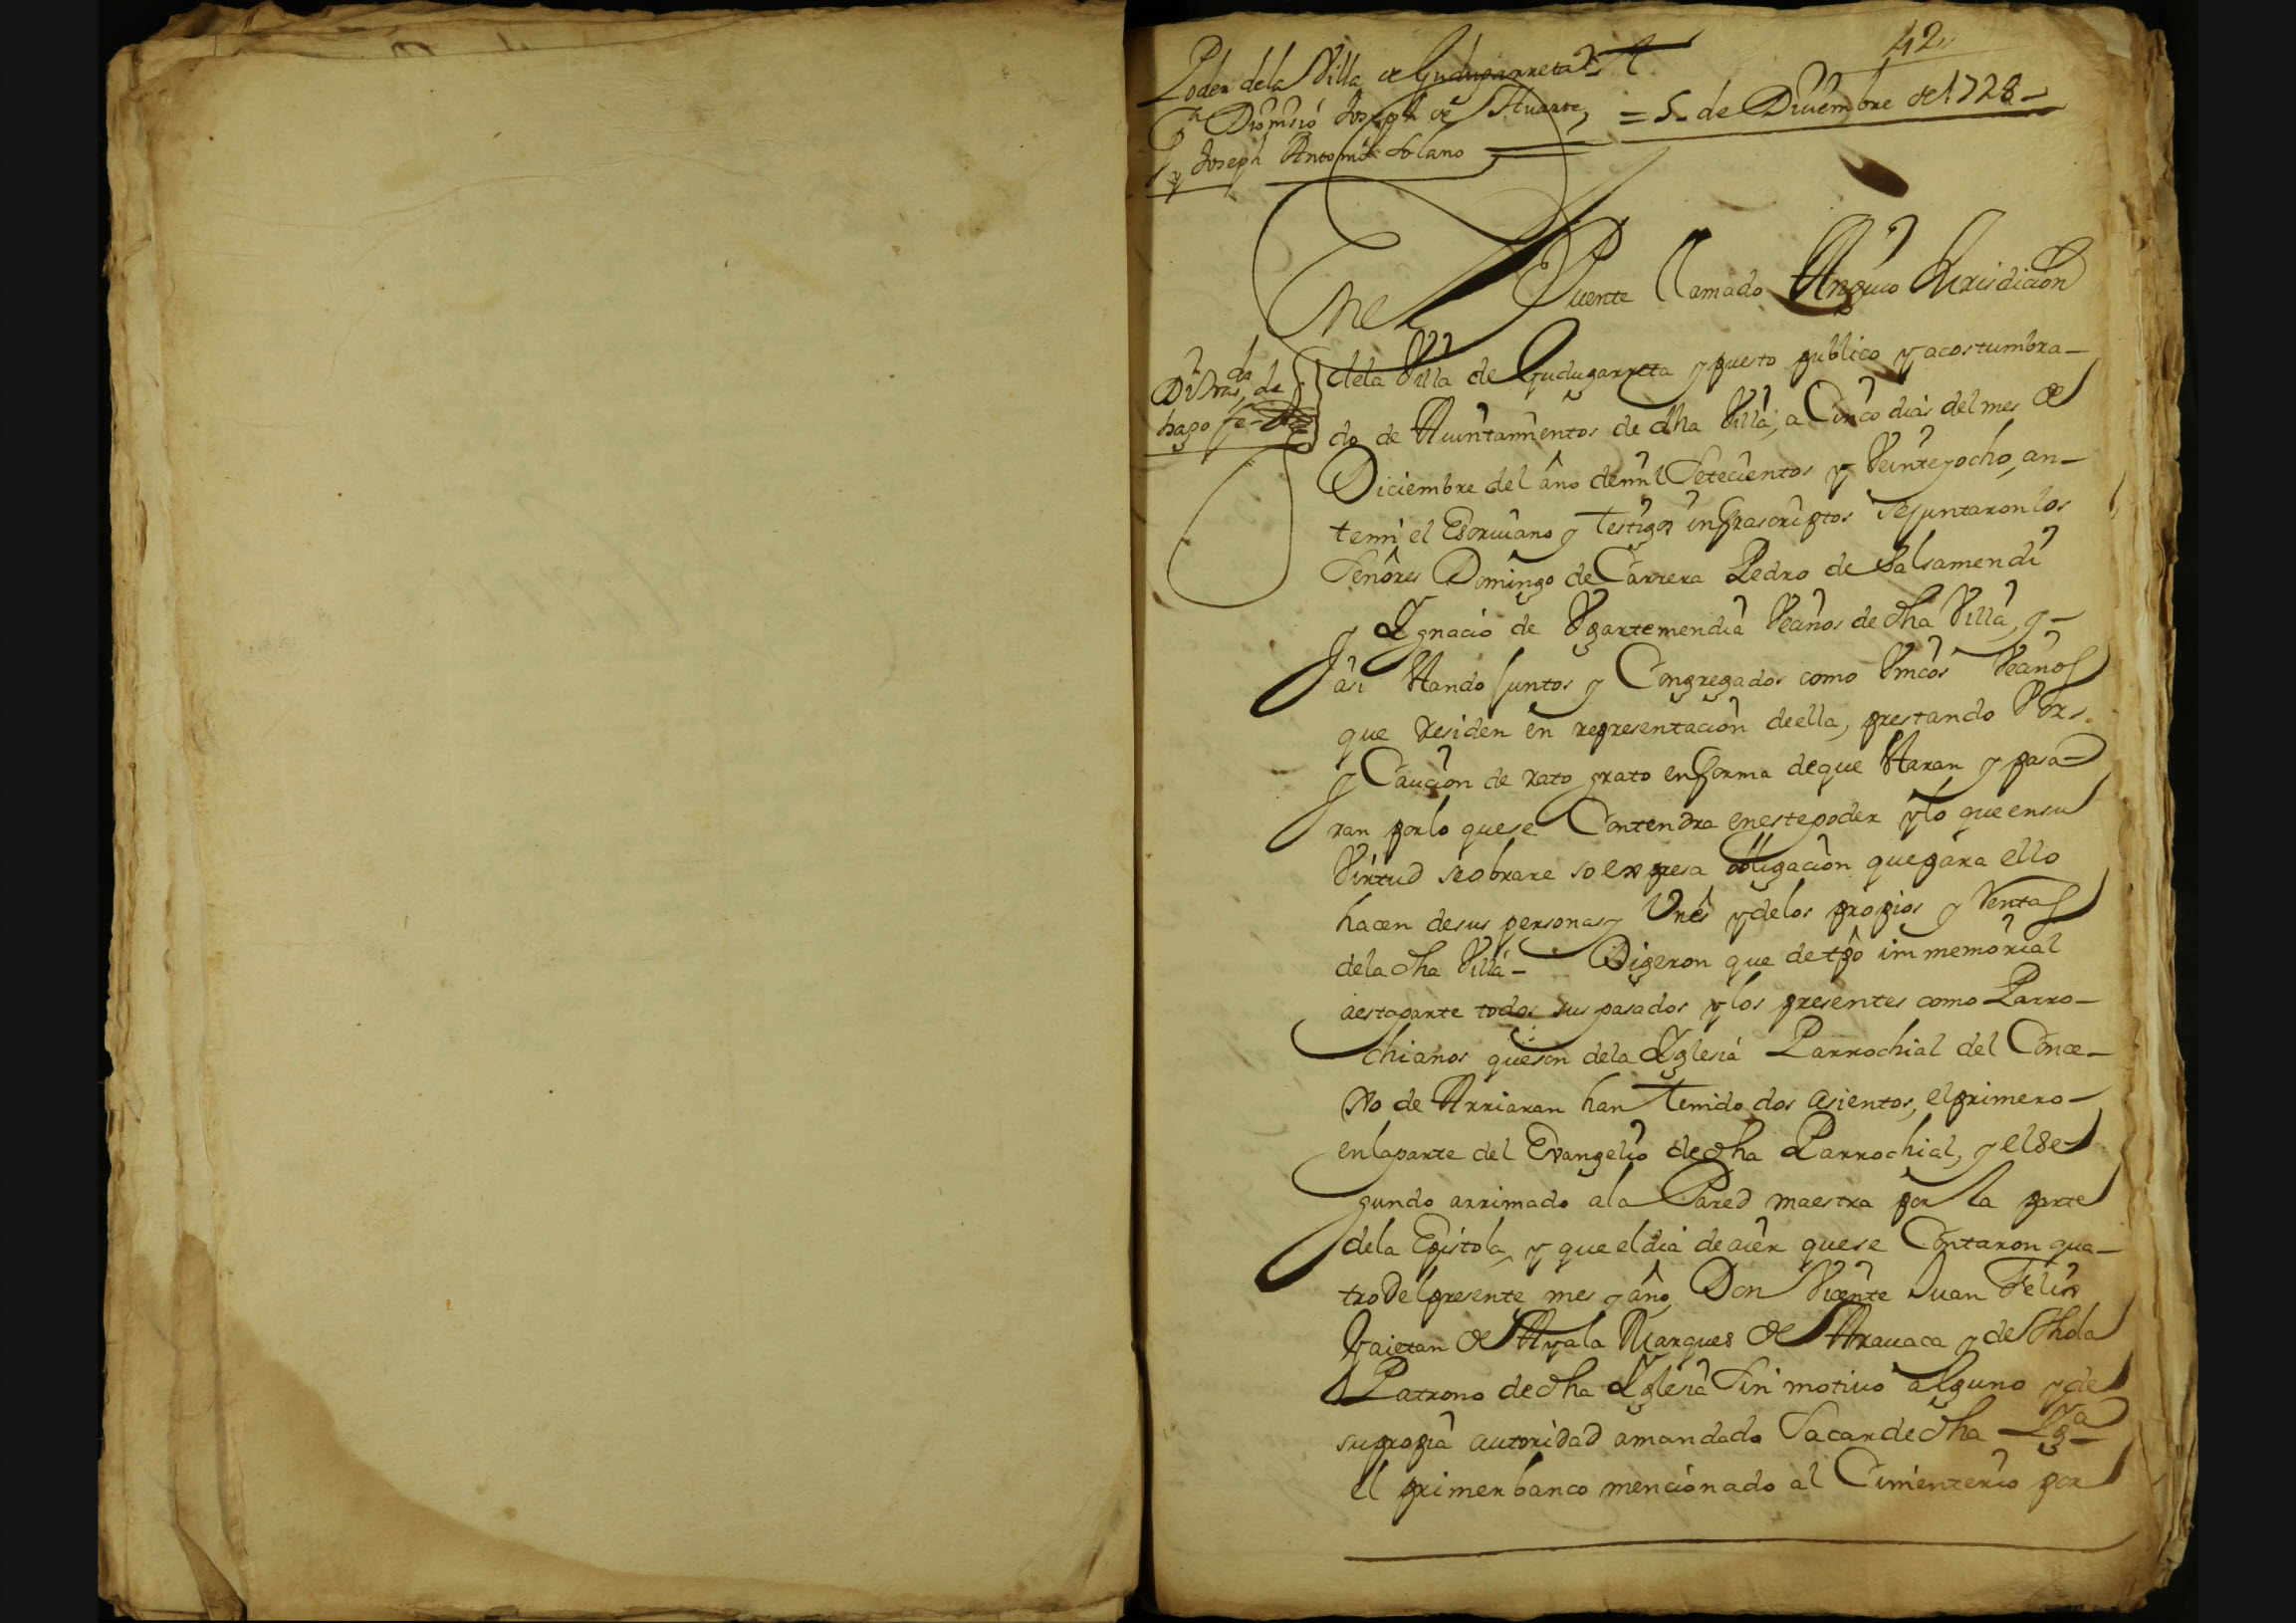 42
Poder de la Villa de Gudugarreta
Pa Dionisio Joseph de
y Joseph Antonio Solano
= 5 de Diciembre de 1728 -
En el Puente llamado Anduo Jurisdicion
hago fe
dela Villa de Gudugarreta y puesto publico y acostumbra-
do de Aiuntamientos de dha Villa, a Cinco dias del mes de
Diciembre del año de mil Setecientos y Veinte y ocho, an-
te mi el Escriuano y Testigos infrascriptos se juntaron los
Señores Domingo de Carrera Pedro de Salsamendi
y Ygnacio de Vgartemendia Veçinos de dha Villa, y -
asi estando juntos y Congregados como Vnicos Veçinos
que residen en representacion de ella, prestando Vos
y Caucion de rato grato en forma de que estaran y pasa-
ran por lo que se Contendra en este poder y lo que en su
Virtud se obrare so expresa obligacion que para ello
hacen de sus personas y Vnes y de los propios y Rentas
de la dha Villa - Digeron que de tpo immemorial
a esta parte todos sus pasados y los presentes como Parro-
chianos que son de la Yglesia Parrochial del Conce-
xo de Arriaran han Tenido dos asientos, el primero -
en la parte del Evangelio de dha Parrochial, y el Se-
gundo arrimado a la Pared maestra por la parte
de la Epistola, y que el dia de aier que se Contaron qua-
tro del presente mes y año, Don Vicente Juan Felix
Yaietan de Ayala Marques de Arauaca y de
Patrono de dha Yglesia Sin motiuo alguno y de
su propia autoridad a mandado Sacar de dha Yga
el primer banco mencionado al Cimenterio por